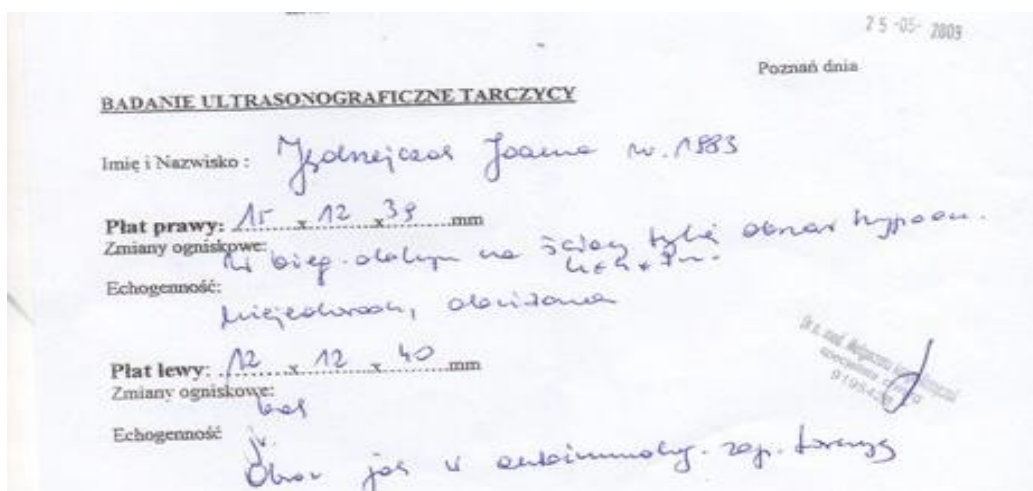 25 -05- 2009
Poznań dnia
BADANIE ULTRASONOGRAFICZNE TARCZYCY
Imię i Nazwisko : Joanna ur. 1983
Płat prawy: 15 x 12 x 39 mm
Zmiany ogniskowe:
W bieg. dolnym na ściany tylnej obszar hypoech.
Echogenność:
Niejednorodn, obniżona
Płat lewy: 12 x 12 x 40 mm
Zmiany ogniskowe:
brak
Echogenność
j.w.
Obraz jak w autoimmunolog. zap. tarczycy